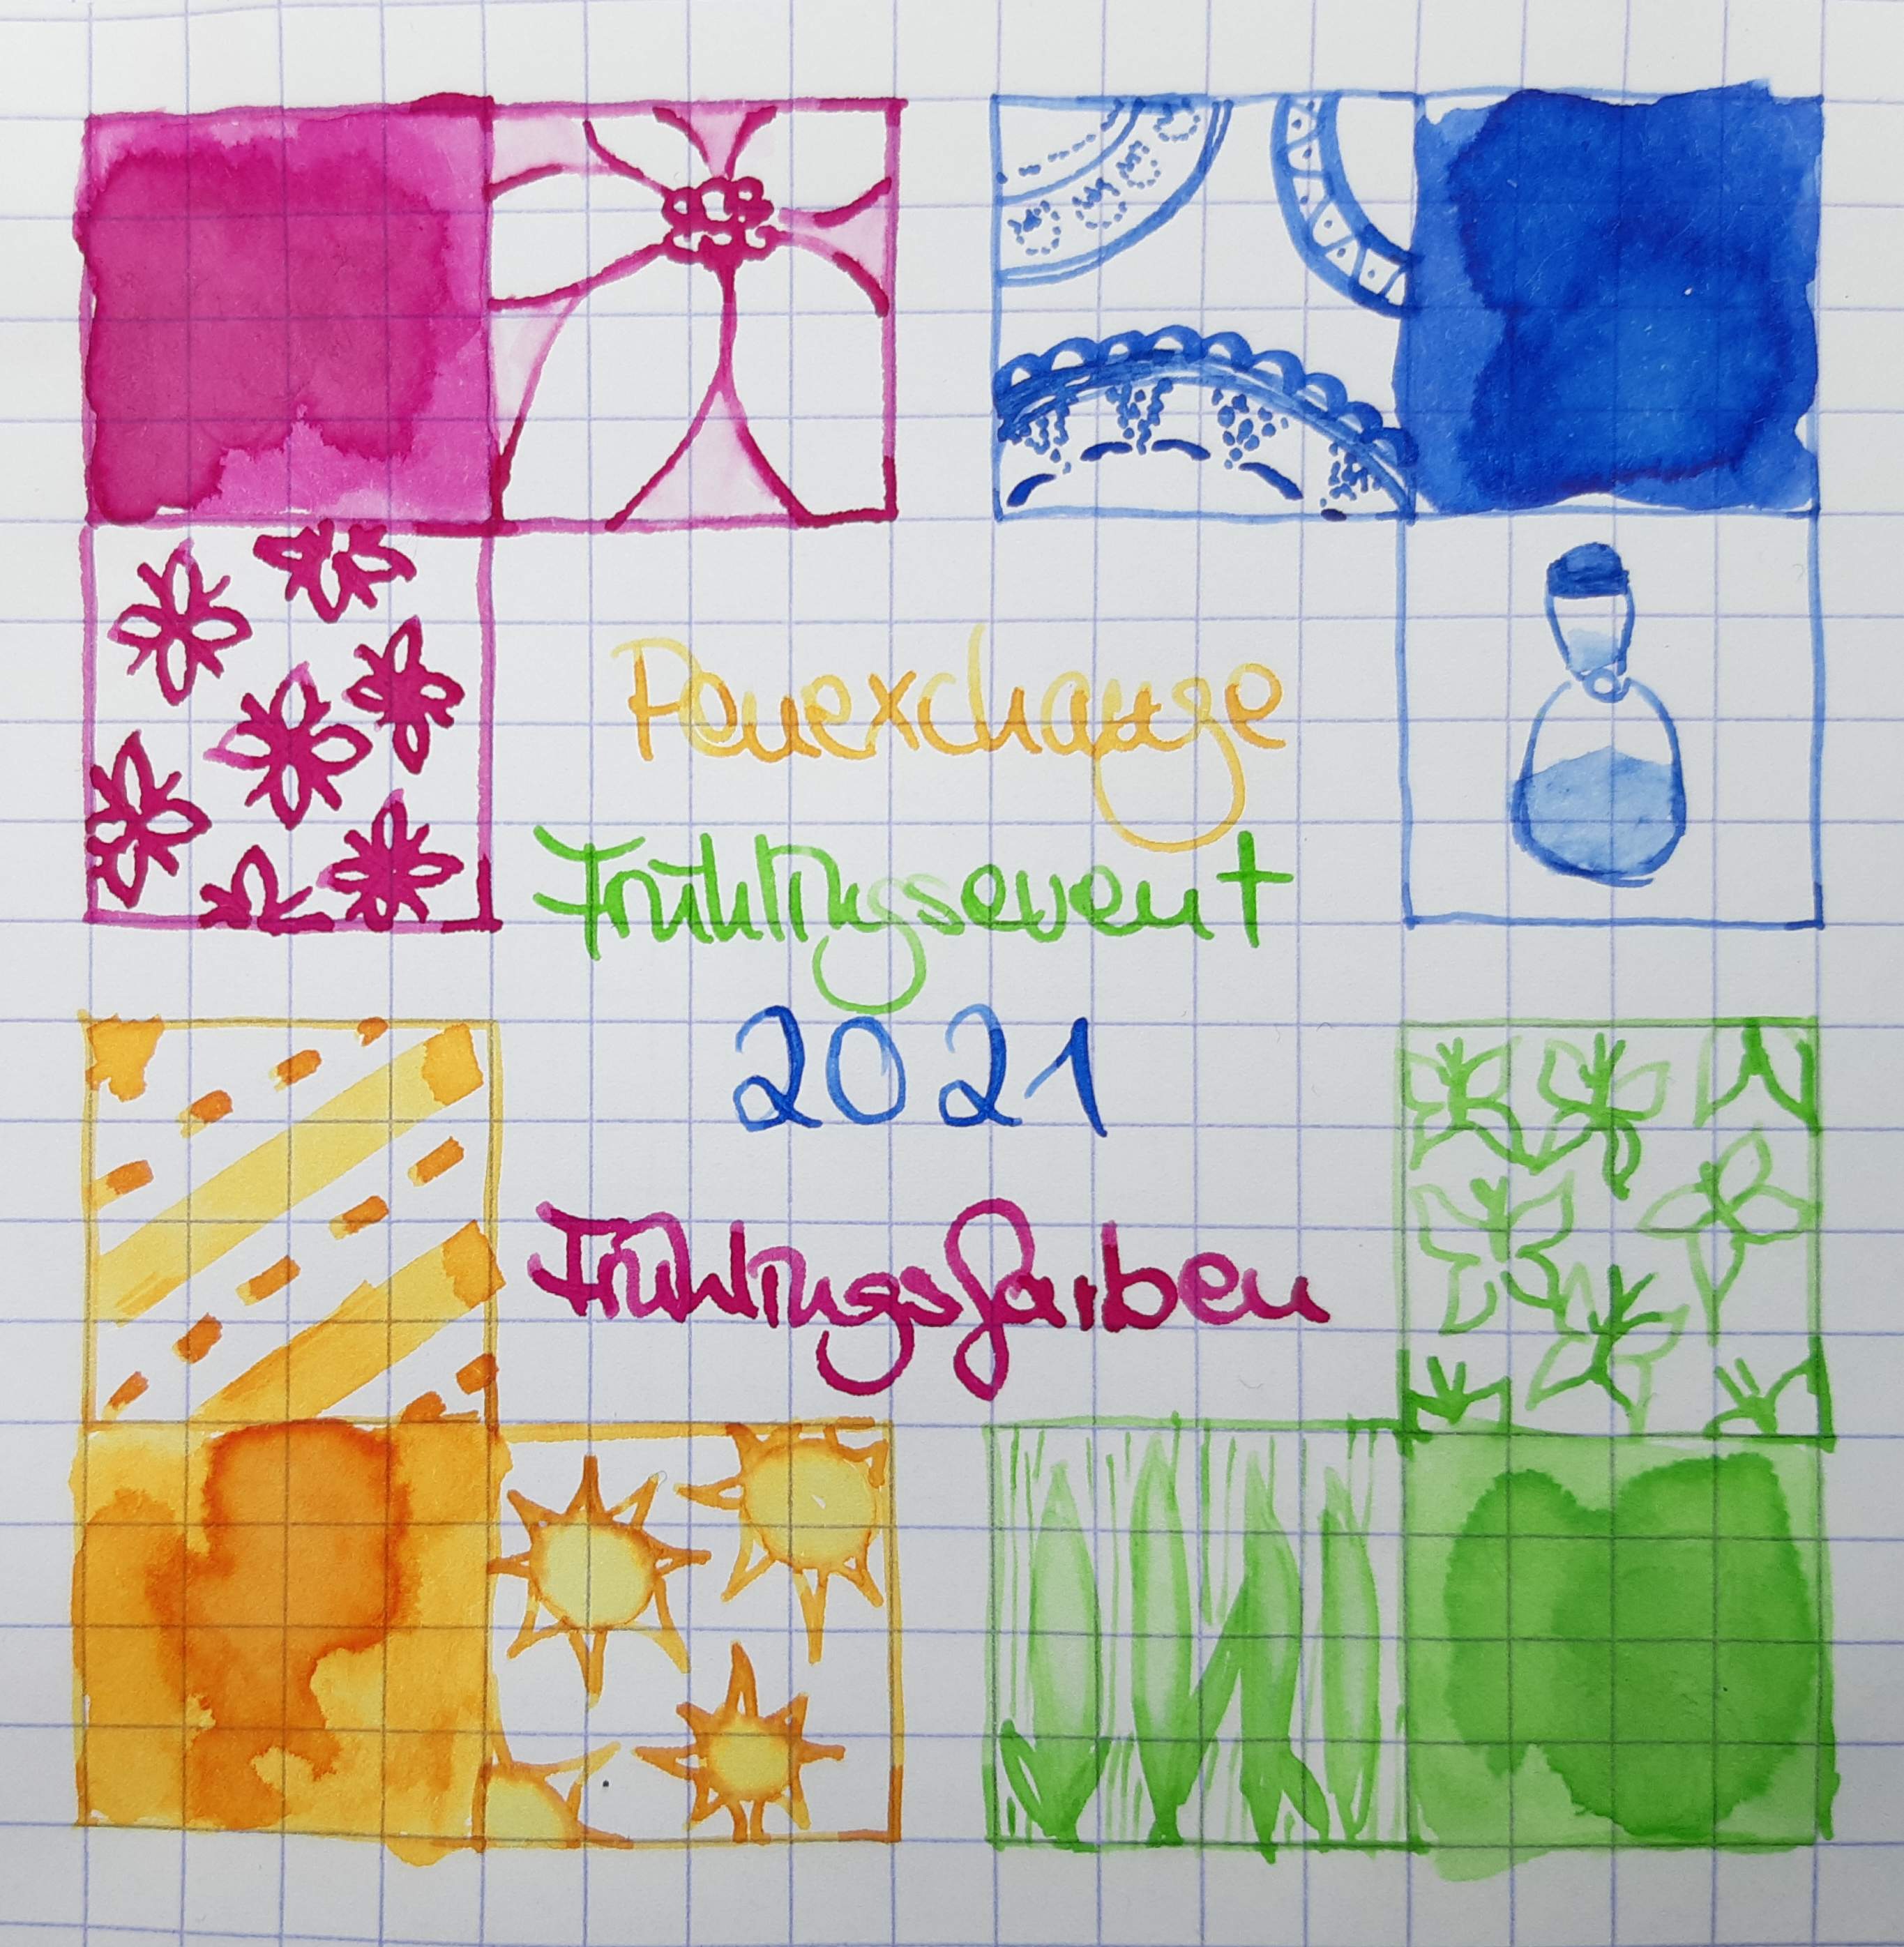 Penexchange
Frühlingsevent
2021
Frühlingsfarben